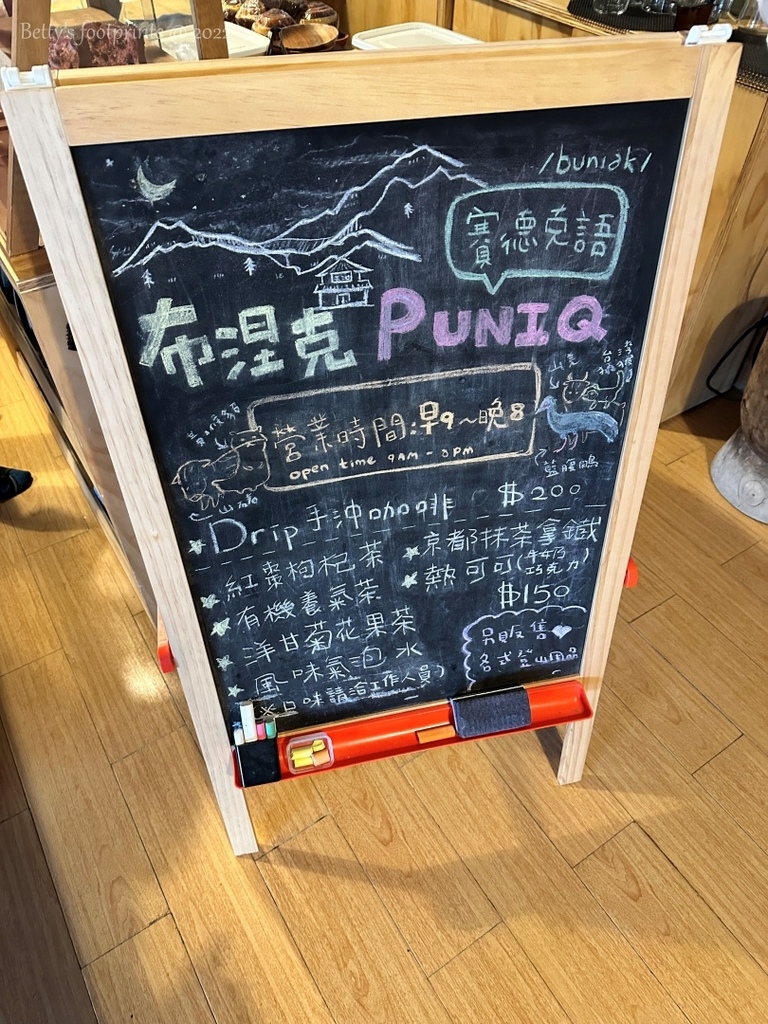 Betty's footprints @ 202
/buniak/
賽德克語
布涅克 PUNIQ
山羌
營業時間:早9~晚8
open time 9AM - 8PM
藍腹鷴
Drip 手沖咖啡 $200
紅棗枸杞茶
有機養氣茶
洋甘菊花果茶
風味氣泡水
※口味請洽工作人員)
京都抹茶拿鐵
熱可可(牛奶巧克力)
$150
另販售
各式登山用品